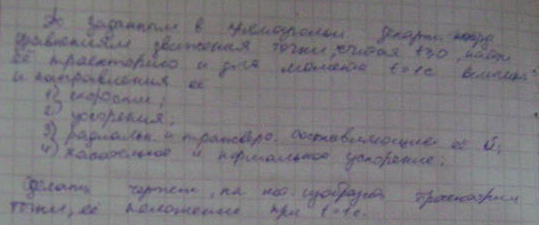 По заданным в прямоугольн. декарт. коорд.
уравнениям движения точки, считая t≥0, найти
её траекторию и для момента t=1c величины
и направления её
1) скорости;
2) ускорения;
3) радиальн. и трансверс. составляющие её ū;
4) касательное и нормальное ускорение;
Сделать чертеж, на нем изобразить траекторию
точки, её положение при t=1c.